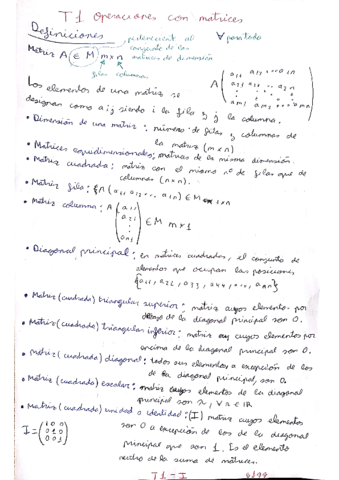 T1 Operaciones con matrices
Definiciones
pertenecient al ∀ para todo
conjunto de las
Matriz A ∈ M m x n matrices de dimensión
filas columnas
A ( a11 a12 ... a1n
a21 a22 .. a2n
am1 am2 ... amn )
Los elementos de una matriz se
designan como aij siendo i la fila y j la columna.
• Dimensión de una matriz: número de filas y columnas de
la matriz (m x n)
• Matrices equidimensionales: matrices de la misma dimensión
• Matriz cuadrada: matriz con el mismo nº de filas que de
columnas (n x n).
• Matriz fila: A (a11 a12 ... a1n) ∈ M 1 x n
• Matriz columna: A ( a11
a21
⋮
am1 ) ∈ M m x 1
• Diagonal principal: en matrices cuadradas, el conjunto de
elementos que ocupan las posiciones
{a11, a22, a33, a44, ..., ann}
• Matriz (cuadrada) triangular superior: matriz cuyos elementos por
debajo de la diagonal principal son 0.
• Matriz (cuadrada) triangular inferior: matriz cuyos elementos por
encima de la diagonal principal son 0.
• Matriz (cuadrada) diagonal: todos sus elementos a excepción de los
de la diagonal principal, son 0.
• Matriz (cuadrada) escalar: matriz cuyos elementos de la diagonal
principal son
• Matriz (cuadrada) unidad o identidad: (I) matriz cuyos elementos
I = ( 1 0 0
0 1 0
0 0 1 )
son 0 a excepción de los de la diagonal
principal que son 1. Es el elemento
neutro de la suma de matrices.
T1 = I